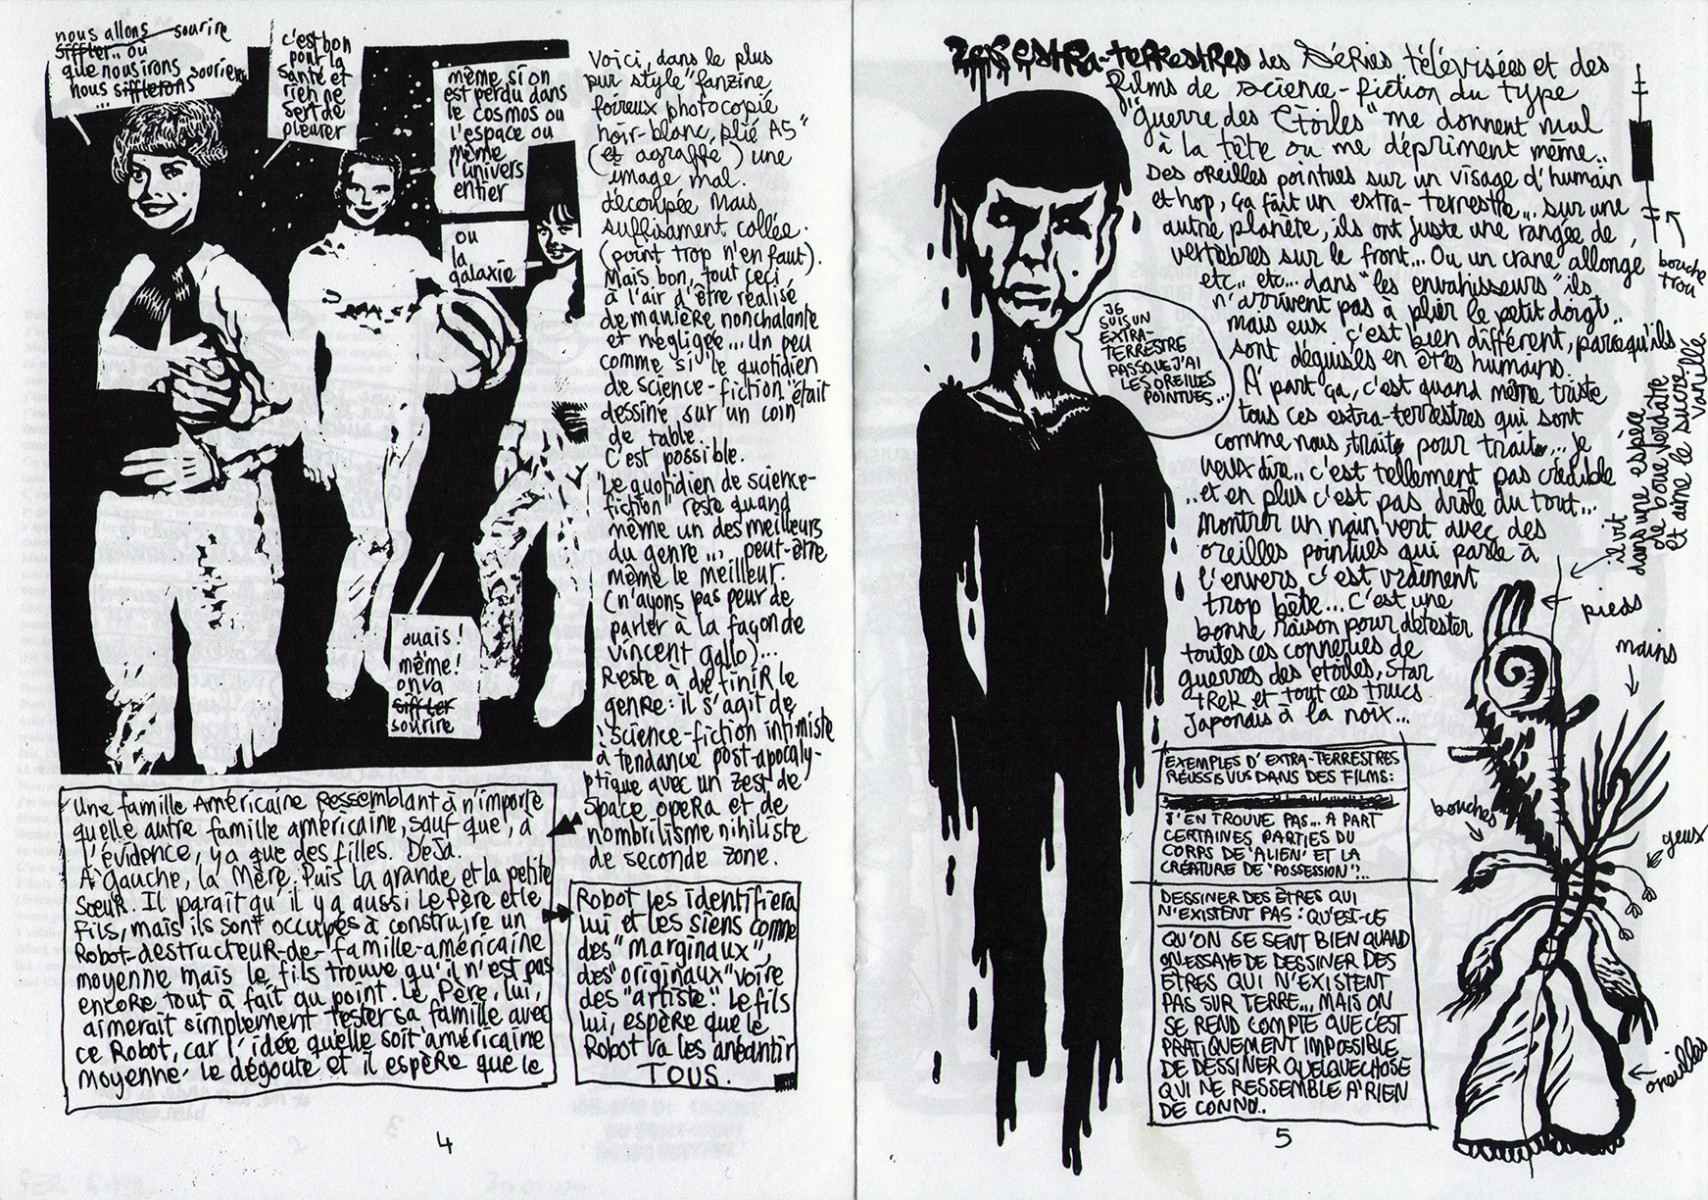 nous allons sourire
siffler.. ou
que nous irons souriens
nous siffletons
...
c'est bon
pour la
santé et
rien ne
sert de
pleurer
même si on
est perdu dans
le cosmos ou
l'espace ou
même
l'univers
entier
ou
la
galaxie
ouais!
même!
on va
siffler
sourire
Voici, dans le plus
pur style "fanzine
foireux photocopié
noir-blanc, plié A5"
(et agraffé) une
image mal
découpée mais
suffisament collée.
(point trop n'en faut).
Mais bon, tout ceci
à l'air d'être réalisé
de manière nonchalante
et négligée... Un peu
comme si "le quotidien
de science-fiction" était
dessiné sur un coin
de table.
C'est possible.
"Le quotidien de science-
fiction" reste quand
même un des meilleurs
du genre... peut-être
même le meilleur.
(n'ayons pas peur de
parler à la façon de
vincent gallo)...
Reste à définir le
genre: il s'agit de
science-fiction intimiste
à tendance post-apocaly-
ptique avec un zest de
space opera et de
nombrilisme nihiliste
de seconde zone.
Une famille Américaine ressemblant à n'importe
quelle autre famille américaine, sauf que, à
l'évidence, y a que des filles. Déjà.
A gauche, la Mère. Puis la grande et la petite
soeur. Il parait qu'il y a aussi le Père et le
fils, mais ils sont occupés à construire un
Robot-destructeur-de-famille-américaine
moyenne mais le fils trouve qu'il n'est pas
encore tout à fait au point. Le Père, lui,
aimerait simplement tester sa famille avec
ce Robot, car l'idée quelle soit "américaine
moyenne" le dégoute et il espère que le
Robot les identifiera
lui et les siens comme
des "marginaux",
des "originaux" voire
des "artiste". Le fils
lui, espère que le
Robot va les anéantir
TOUS.
4
Les extra-terrestres des séries télévisées et des
films de science-fiction du type
"guerre des Etoiles" me donnent mal
à la tête ou me dépriment même..
Des oreilles pointues sur un visage d'humain
et hop, ça fait un extra-terrestre... sur une
autre planète, ils ont juste une rangée de
vertèbres sur le front... Ou un crane allongé
etc.. etc... dans "les envahisseurs" ils
n'arrivent pas à plier le petit doigt..
mais eux.. c'est bien différent, parcequ'ils
sont déguisés en êtres humains.
A part ça, c'est quand même triste
tous ces extra-terrestres qui sont
comme nous, traits pour traits... je
veux dire... c'est tellement pas crédible
..et en plus c'est pas drôle du tout...
Montrer un nain vert avec des
oreilles pointues qui parle à
l'envers, c'est vraiment
trop bête... C'est une
bonne raison pour détester
toutes ces conneries de
guerres des étoiles, Star
trek et tout ces trucs
Japonais à la noix...
JE
SUIS UN
EXTRA-
TERRESTRE
PASQUE J'AI
LES OREILLES
POINTUES...
EXEMPLES D'EXTRA-TERRESTRES
RÉUSSIS VUS DANS DES FILMS:
J'EN TROUVE PAS... A PART
CERTAINES PARTIES DU
CORPS DE 'ALIEN' ET LA
CRÉATURE DE 'POSSESSION'!..
DESSINER DES ÊTRES QUI
N'EXISTENT PAS: QU'EST-CE
QU'ON SE SENT BIEN QUAND
ON ESSAYE DE DESSINER DES
ÊTRES QUI N'EXISTENT
PAS SUR TERRE... MAIS ON
SE REND COMPTE QUE C'EST
PRATIQUEMENT IMPOSSIBLE
DE DESSINER QUELQUECHOSE
QUI NE RESSEMBLE A RIEN
DE CONNU..
bouche
trou
il vit
dans une espèce
de boue verdatre
et aime le sucre
vanillé
pieds
mains
bouches
yeux
oreilles
5